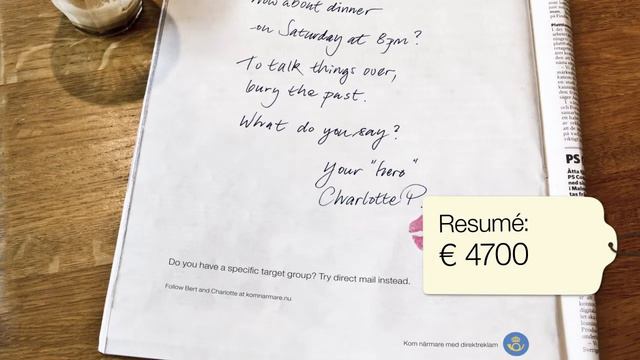 How about dinner
on Saturday at 8pm?
To talk things over,
bury the past.
What do you say?
Your "hero"
Charlotte P.
Resumé:
€ 4700
Do you have a specific target group? Try direct mail instead.
Follow Bert and Charlotte at komnarmare.nu
Kom närmare med direktreklam
PS